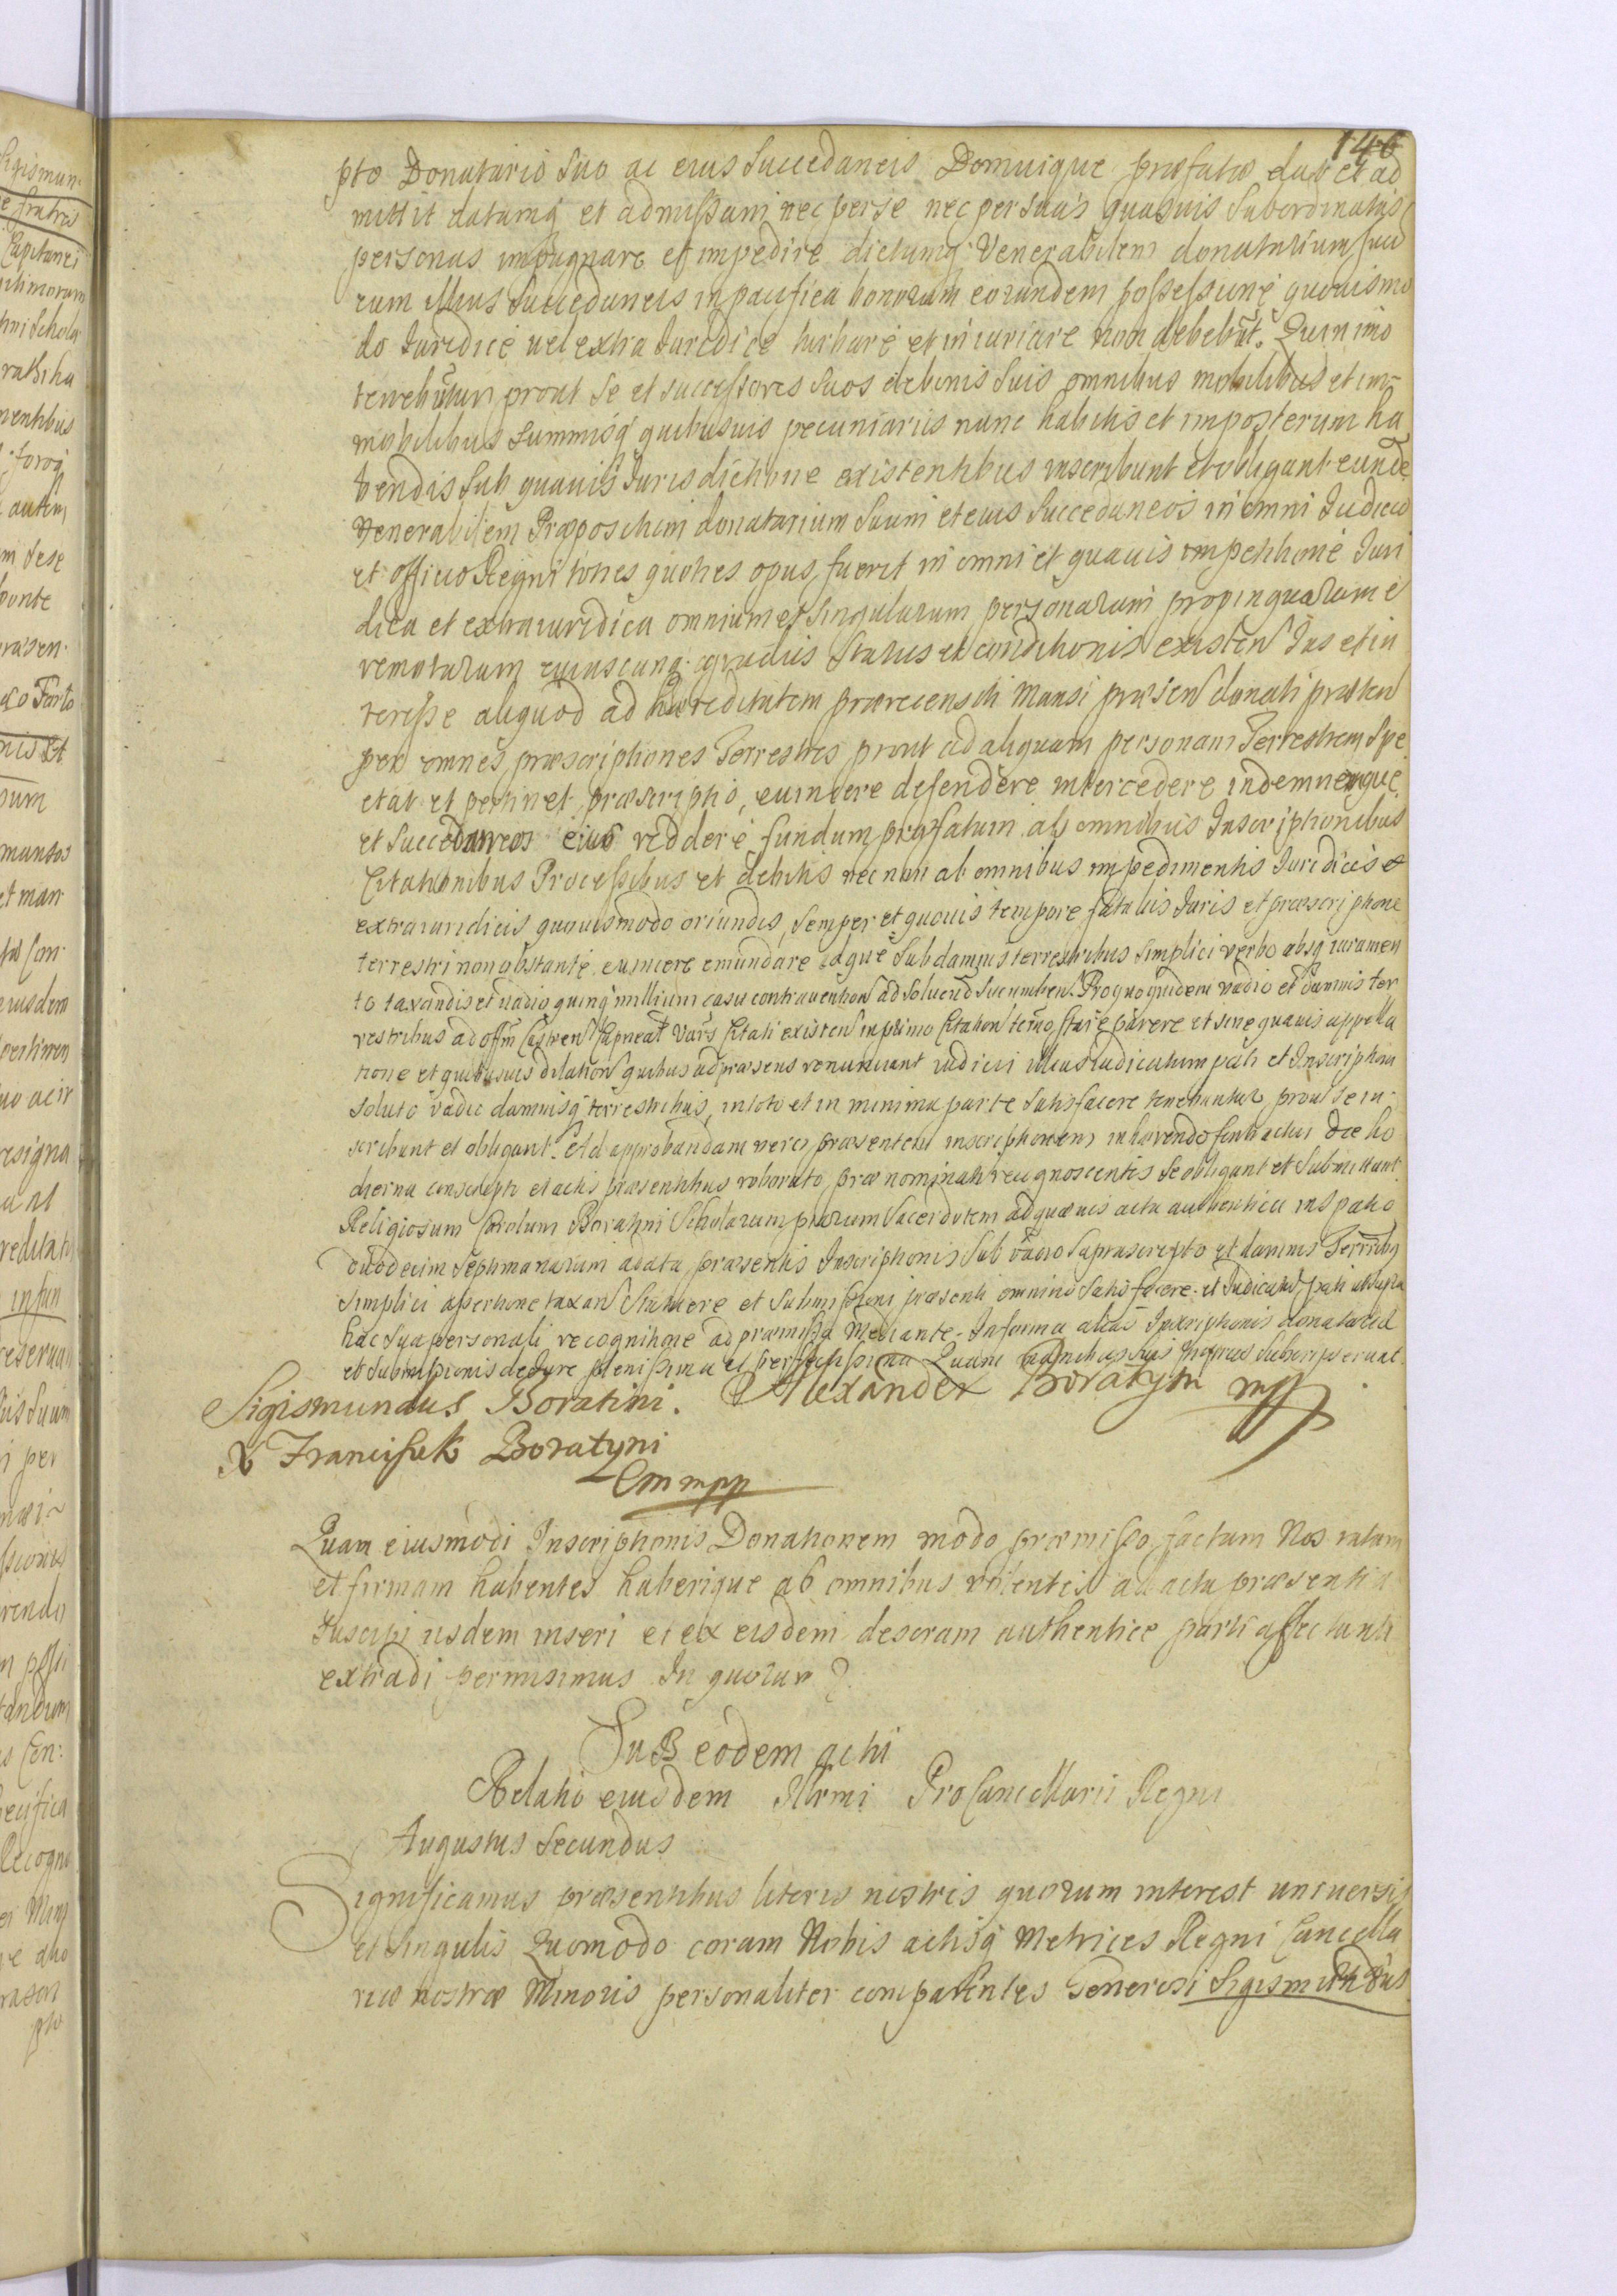 146
pto Donatario Suo ac eius Succedaneis Domuique præfatæ dat et ad
mittit datamq et admissam nec per se nec per suas quasuis Subordinatas
personas impugnare et impedire dictumq Venerabilem donatarium suu
eum illius Succedaneis in pacifica bonorum eorundem possessione quouismo
do Iuredice uel extra Iuredice turbare et iniuriare non debebūt. Quin imo
tenebūtur prout Se et successores Suos de bonis Suis omnibus mobilibus et im-
mobilibus Summisq quibusuis pecuniariis nunc habitis et imposterum ha
bendis Sub quauis Iurisdictione existentibus inscribunt et obligant eunde
Venerabilem Præpositum donatarium Suum et eius Succedaneos in omni Iudicio
et officio Regni toties quoties opus fuerit in omni et quauis impetitione Iuri
dica et extraiuridica omnium et Singularum personarum propinquarum e
remotarum cuiuscunq gradus Status et conditionis existen Ius et in
teresse aliquod ad hæreditatem prærecensiti Mansi præsen donati præten
per omnes præscriptiones Terrestres prout ad aliquam personam Terrestrem Spe
ctat et pertinet præscriptio, euincere defendere intercedere indemnemque
et Succedaneos eius reddere fundum præfatum ab omnibus Inscriptionibus
Citationibus Processibus et debitis nec non ab omnibus impedimentis Iuredicis et
extraiuridicis quouismodo oriundis, Semper et quouis tempore fatalis Iuris et præscriptione
terrestri non obstante euincere emundare idque Sub damnis terrestribus Simplici verbo absq iuramen
to taxandis et uadio quinq millium casu contrauention ad Soluend Sucumben. Pro quo quidem vadio et damnis ter
restribus ad offm Castren Capneat Vars Citati existen in primo Citation termo stare parere et sine quauis appella
tione et quibusuis dilation quibus ad præsens renunciant iudicii illius iudicatum pati et Inscription
Soluto vadio damnisq terrestribus, in toto et in minima parte Satisfacere tenebuntur prout se in-
scribunt et obligant. Ad approbandam vero præsentem inscriptionem inhærendo contractui die ho
dierna conscripto et actis præsentibus roborato, præ nominati recognoscentes Se obligant et Submittunt
Religiosum Carolum Boratini Scholarum piarum Sacerdotem ad quæuis acta authentica in spatio
duodecim Septimanarum a data præsentis Inscriptionis Sub vadio Suprascripto et damnis Terribq
Simplici assertione taxan Statuere et Submissioni præsenti omnino Satisfacere et Iudicatu pati
hac Sua personali recognitione ad præmissa Mediante. In forma Inscriptionis donatoriæ
et Submissionis de Iure plenissima et perfectissima Quam manibus Suis propriis Subscripserunt.
Sigismundus Boratini. Alexander Boratyni mpp
X Franciszek Boratyni
mpp
Quam eiusmodi Inscriptionis Donationem modo præmisso factam Nos ratam
et firmam habentes haberique ab omnibus volentes ad acta præsentia
Suscipi iisdem inseri et ex eisdem descram authentice parti affectanti
extradi permisimus In quorum ?
Sub eodem actu
Relatio eiusdem Illrmi ProCancellarii Regni
Augustus Secundus
Significamus præsentibus literis nostris quorum interest uniuersis
et Singulis Quomodo coram Nobis actisq Metrices Regni Cancella
riæ nostræ Minoris personaliter comparentes Generosi Sigismundus